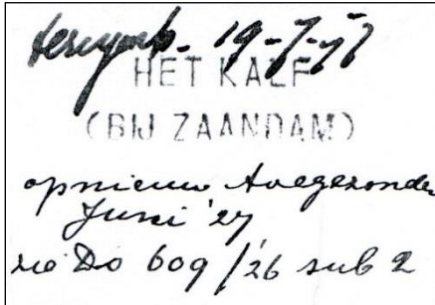 19-7-27
HET KALF
(BIJ ZAANDAM)
opnieuw toegezonden
Juni '27
zie Do 609/'26 sub 2